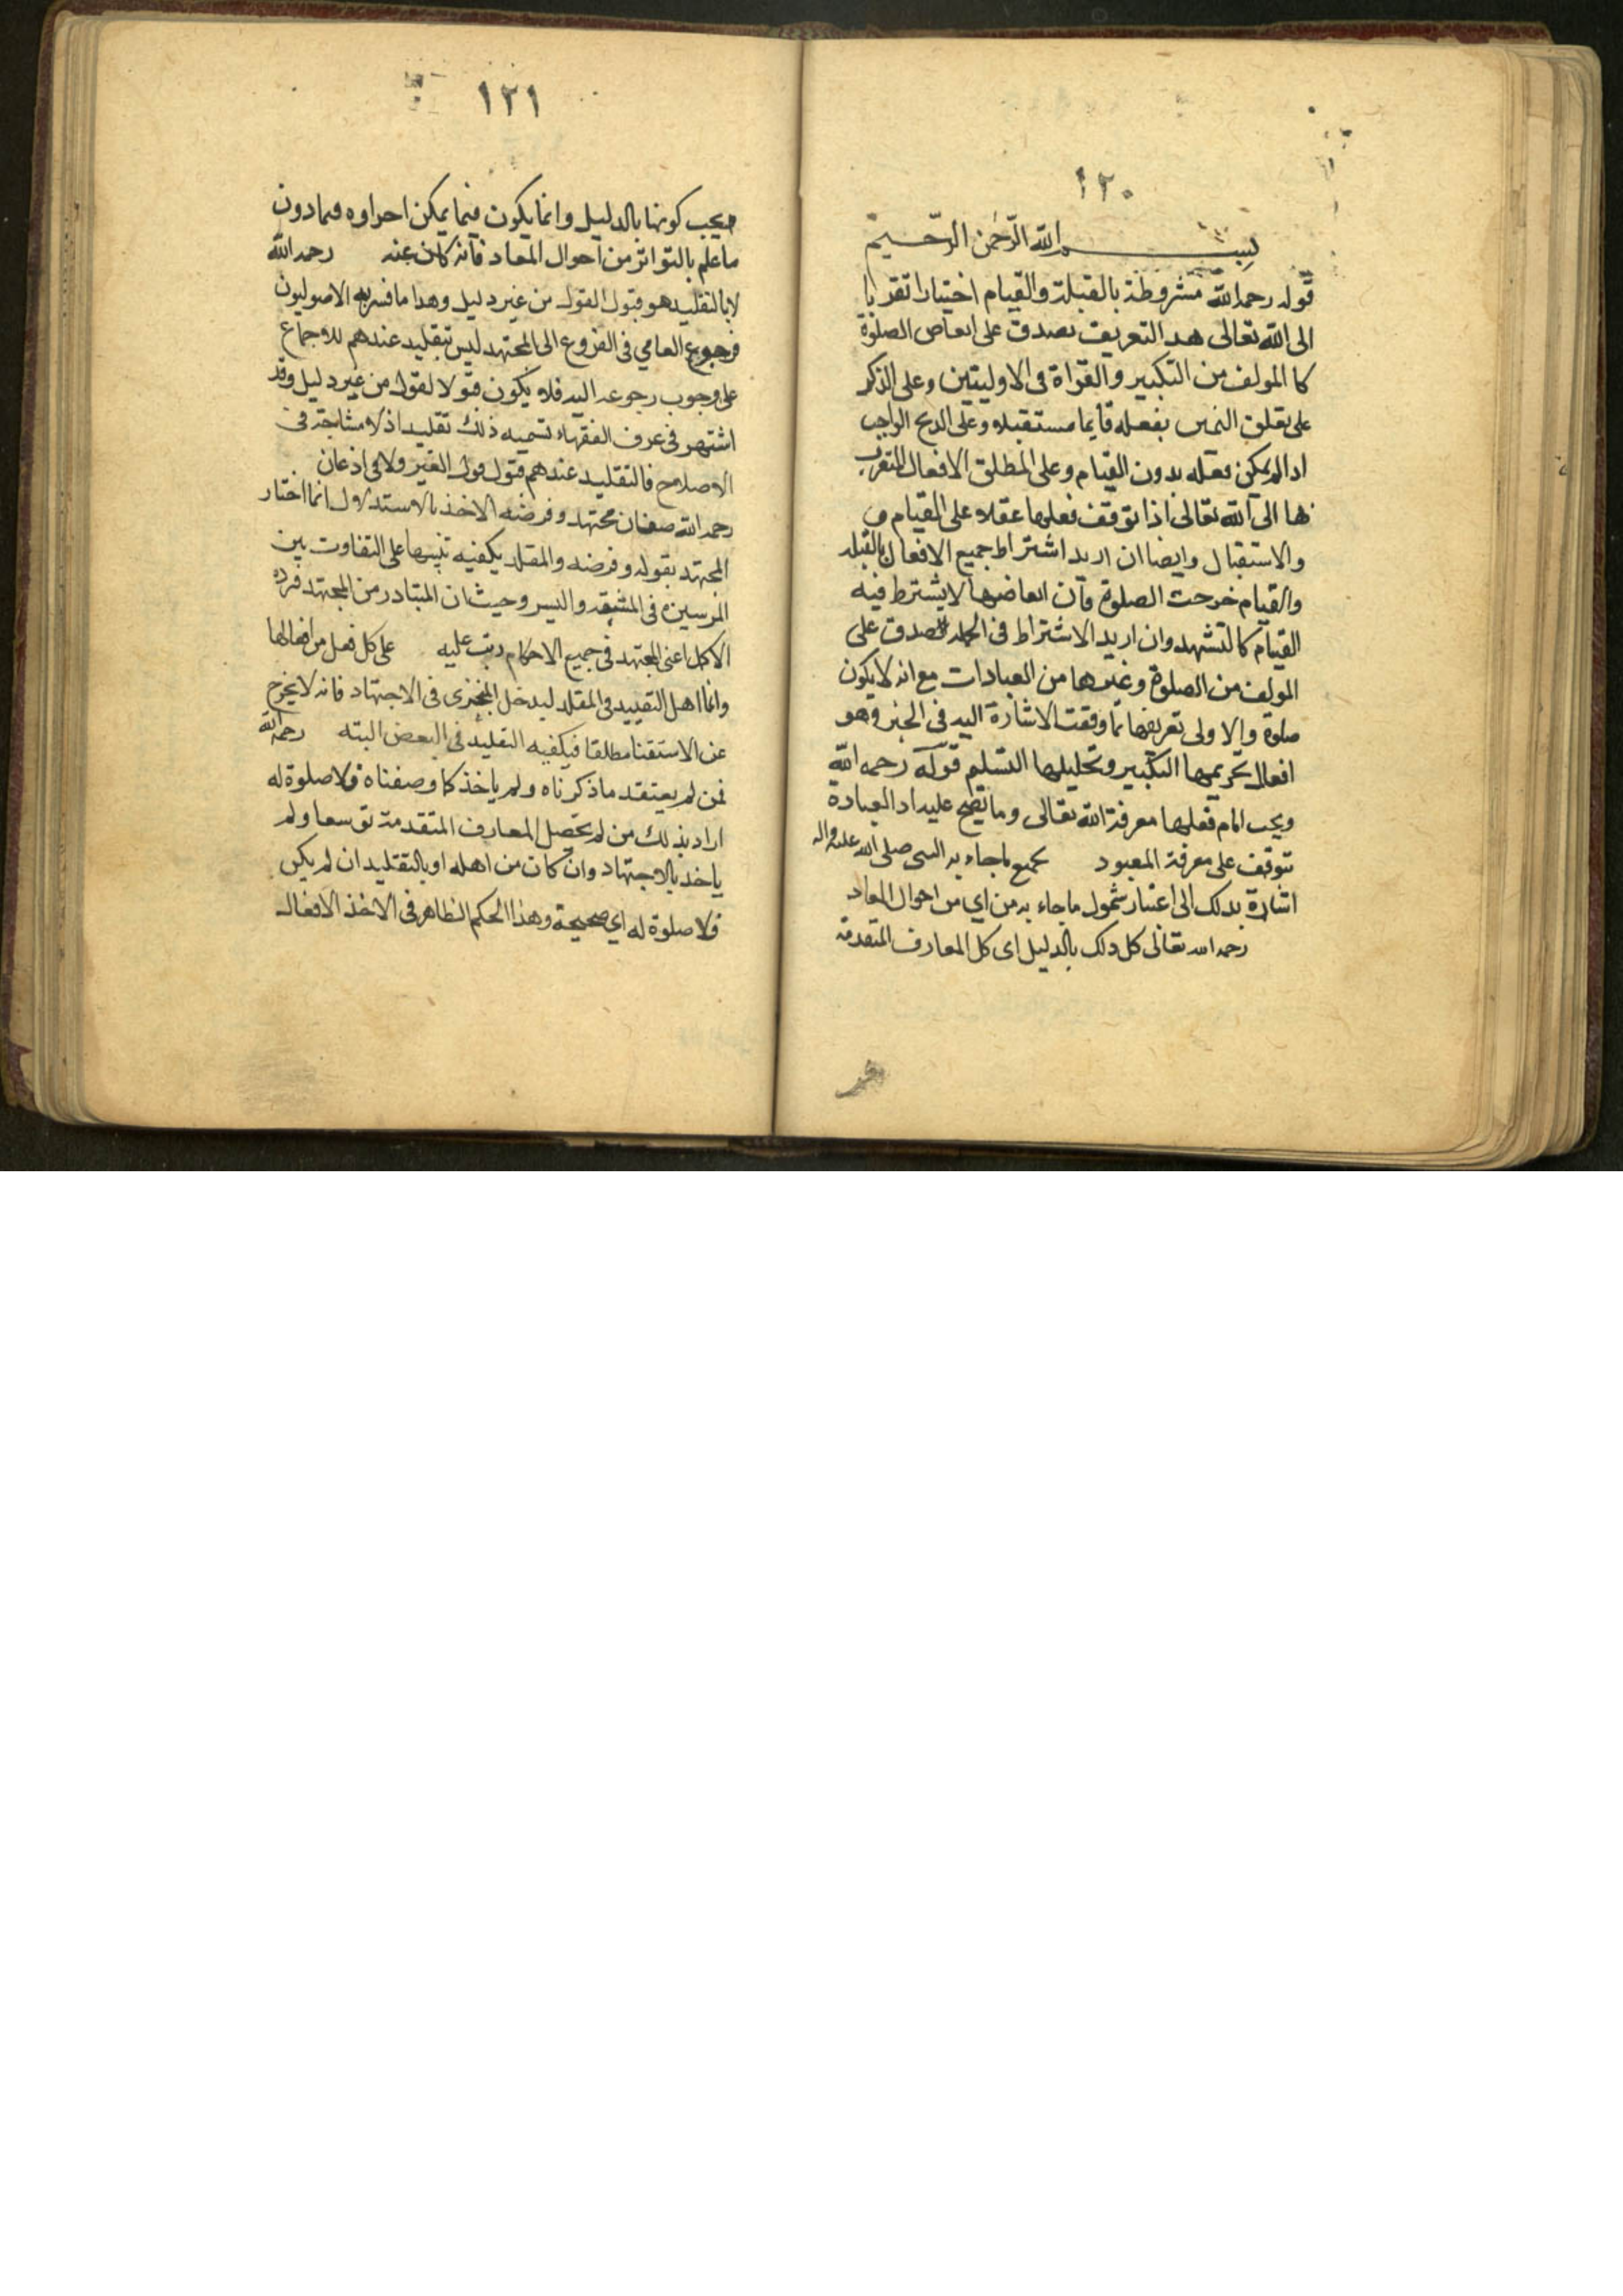 ١٢٠
بسم الله الرحمن الرحيم
قوله رحمه الله مشروطة بالقبلة والقيام اختيارا تقربا
الى الله تعالى هذا التعريف يصدق على ابعاض الصلوة
كالمولف من التكبير والقراة فى الاوليتين وعلى الذكر
على تعلق بفعله قايما مستقبلا وعلى الذبح الواجب
اذا لم يمكن فعله بدون القيام وعلى المطلق الافعال المتقرب
بها الى الله تعالى اذا توقف فعلها عقلا على القيام و
والاستقبال وايضا ان اريد اشتراط جميع الافعال بالقبله
والقيام خرجت الصلوة فان ابعاضها لا يشترط فيه
القيام كالتشهد وان اريد الاشتراط فى الجمله صدق على
المولف من الصلوة وغيرها من العبادات مع انه لا يكون
صلوة والاولى تعريفها بما وقعت الاشارة اليه فى الخبر وهو
افعال تحريمها التكبير وتحليلها التسليم قوله رحمه الله
ويجب امام فعلها معرفة الله تعالى وما يصح عليه اذ العبادة
تتوقف على معرفة المعبود بجميع ما جاء به النبى صلى الله عليه واله
اشارة بذلك الى اعتبار شمول ما جاء به من اى من احوال المعاد
رحمه الله تعالى كل ذلك بالدليل اى كل المعارف المتقدمة
١٢١
يجب كونها بالدليل وانما يكون فيما يمكن اجراوه فما دون
ما علم بالتواتر من احوال المعاد فانه كان عنه رحمه الله
لا بالتقليد هو قبول القول من غير دليل وهذا ما فسر به الاصوليون
فرجوع العامي فى الفروع الى المجتهد ليس بتقليد عندهم للاجماع
على وجوب رجوعه اليه فلا يكون قبولا لقول من غير دليل وقد
اشتهر فى عرف الفقهاء تسميه ذلك تقليدا اذ لا مشاحة فى
الاصلاح فالتقليد عندهم قبول قول الغير ولا فى اذعان
رحمه الله صفان مجتهد وفرضه الاخذ بالاستدلال انما اختار
المجتهد بقوله وفرضه والمقلد يكفيه تنبيها على التفاوت بين
فى المشقه واليسر وحيث ان المتبادر من المجتهد فرده
الاكمل اعنى المجتهد فى جميع الاحكام رتب عليه على كل فعل من افعالها
وانما اهمل التقييد فى المقلد ليدخل المتجزى فى الاجتهاد فانه لا يخرج
عن الاستفتا مطلقا فيكفيه التقليد فى البعض البته رحمه الله
فمن لم يعتقد ما ذكرناه ولم ياخذ كما وصفناه فلا صلوة له
اراد بذلك من لم يحصل المعارف المتقدمة توسعا ولم
ياخذ بالاجتهاد وان كان من اهله او بالتقليد ان لم يكن
فلا صلوة له اي صحيحة وهذا الحكم الظاهر فى الاخذ الافعال